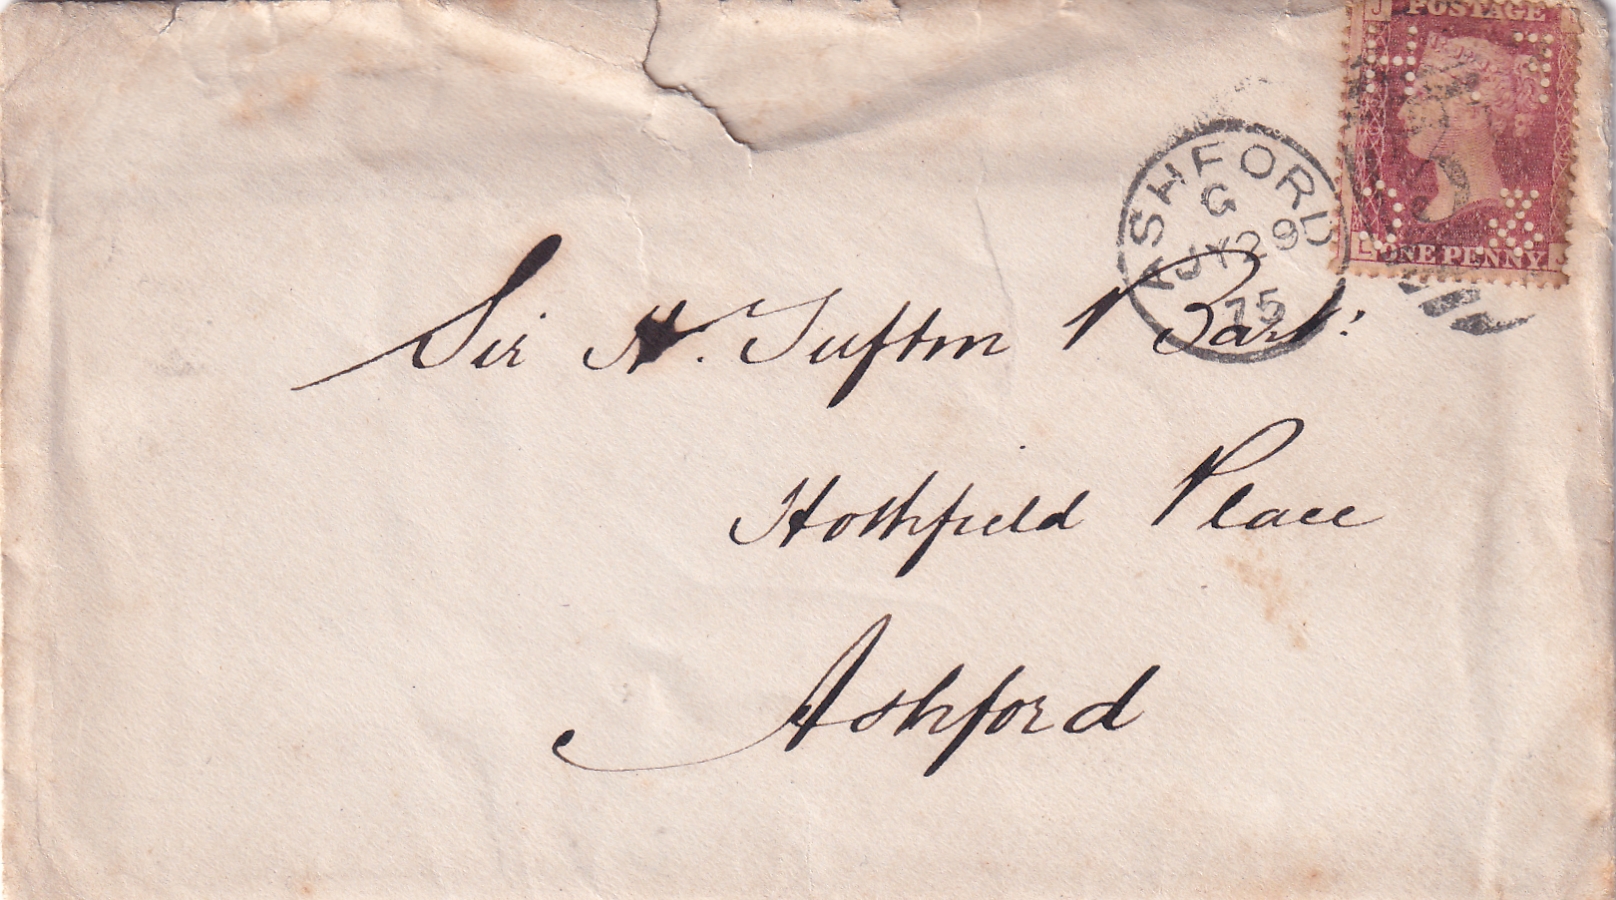 J POSTAGE
L ONE PENNY J
ASHFORD
G
JY 29
75
Sir H. Tufton Bart:
Hothfield Place
Ashford